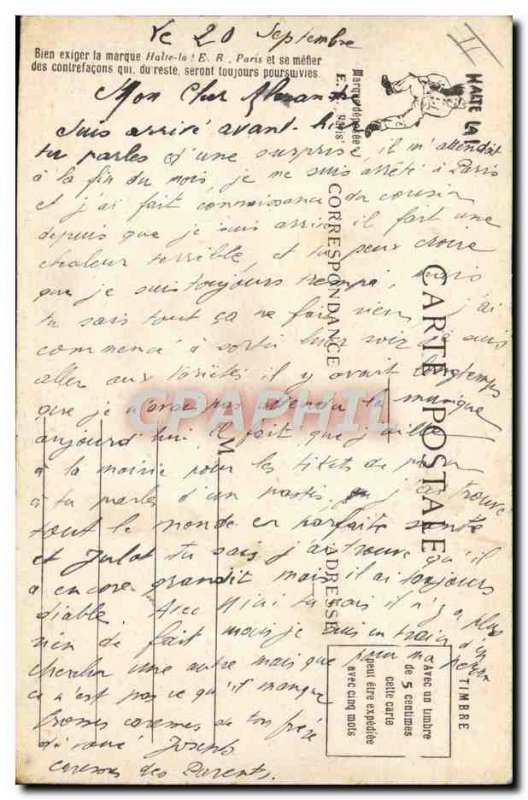 Le 20 Septembre
Bien exiger la marque Halte-là ! E. R., Paris et se méfier
des contrefaçons qui, du reste, seront toujours poursuivies
Marque déposée
E. R. Paris
HALTE LA !
II
Mon Cher Alexandre
Suis arrivé avant-hier
tu parles d'une surprise, il m'attendait
à la fin du mois, je me suis arrêté à Paris
et j'ai fait connaissance du cousin
depuis que je suis arrivé il fait une
chaleur terrible, et tu peux croire
que je suis toujours trempé, mais
tu sais tout ça ne fait rien, j'ai
commencé à sortir hier soir je suis
aller aux il y avait longtemps
que je n'avais pas entendu la musique
aujourd'hui il fait que j'aille
à la mairie pour les de
à tu parles d'un j'ai trouvé
tout le monde en parfaite santé
et Julot tu sais j'ai trouvé qu'il
a encore grandit mais il ai toujours
diable. Avec tu sais il n'y a plus
rien de fait mais je suis en train d'en
chercher une autre mais que pour ma
ca n'est pas ce qu'il manque
bonnes caresses de ton frère
Joseph
caresses des Parents.
CARTE POSTALE
CORRESPONDANCE
ADRESSE
M
TIMBRE
Avec un timbre
de 5 centimes
cette carte
peut être expédiée
avec cinq mots
CPAPHIL